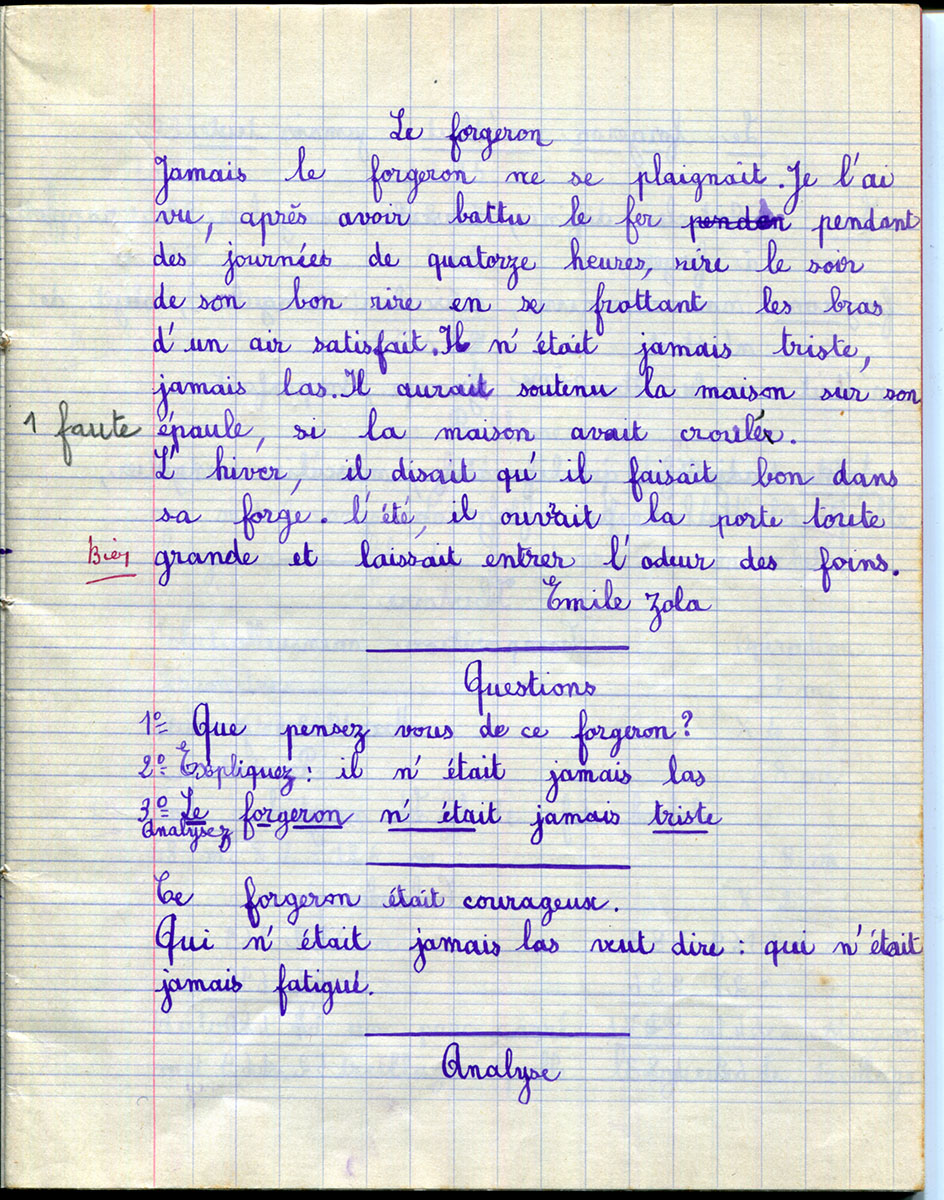 Le forgeron
Jamais le forgeron ne se plaignait. Je l'ai
vu, après avoir battu le fer penden pendant
des journées de quatorze heures, rire le soir
de son bon rire en se frottant les bras
d'un air satisfait. Il n'était jamais triste,
jamais las. Il aurait soutenu la maison sur son
1 faute épaule, si la maison avait croulér.
L'hiver, il disait qu'il faisait bon dans
sa forge. l'été, il ouvrait la porte toute
Bien grande et laissait entrer l'odeur des foins.
Emile Zola
Questions
1º= Que pensez vous de ce forgeron?
2º= Expliquez: il n'était jamais las
3º= Le forgeron n'était jamais triste
Analysez
Ce forgeron était courageux.
Qui n'était jamais las veut dire: qui n'était
jamais fatigué.
Analyse